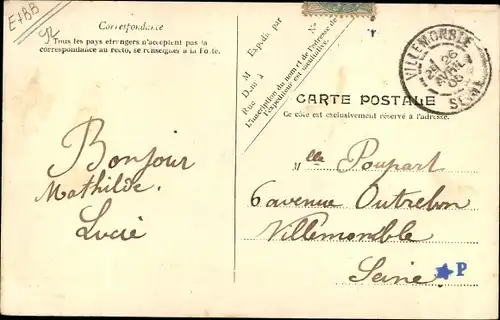 E+BB
92
Correspondance
Tous les pays étrangers n'acceptent pas la
correspondance au recto, se renseigner à la Poste.
Bonjour
Mathilde.
Lucie
M
Expédié par
Demt à
Rue
N°
L'inscription du nom et de l'adresse de
l'expéditeur est facultative.
VILLEMOMBLE
26
06
SEINE
CARTE POSTALE
Ce côté est exclusivement réservé à l'adresse.
Mlle Poupart
6 avenue Outrebon
Villemomble
Seine
P